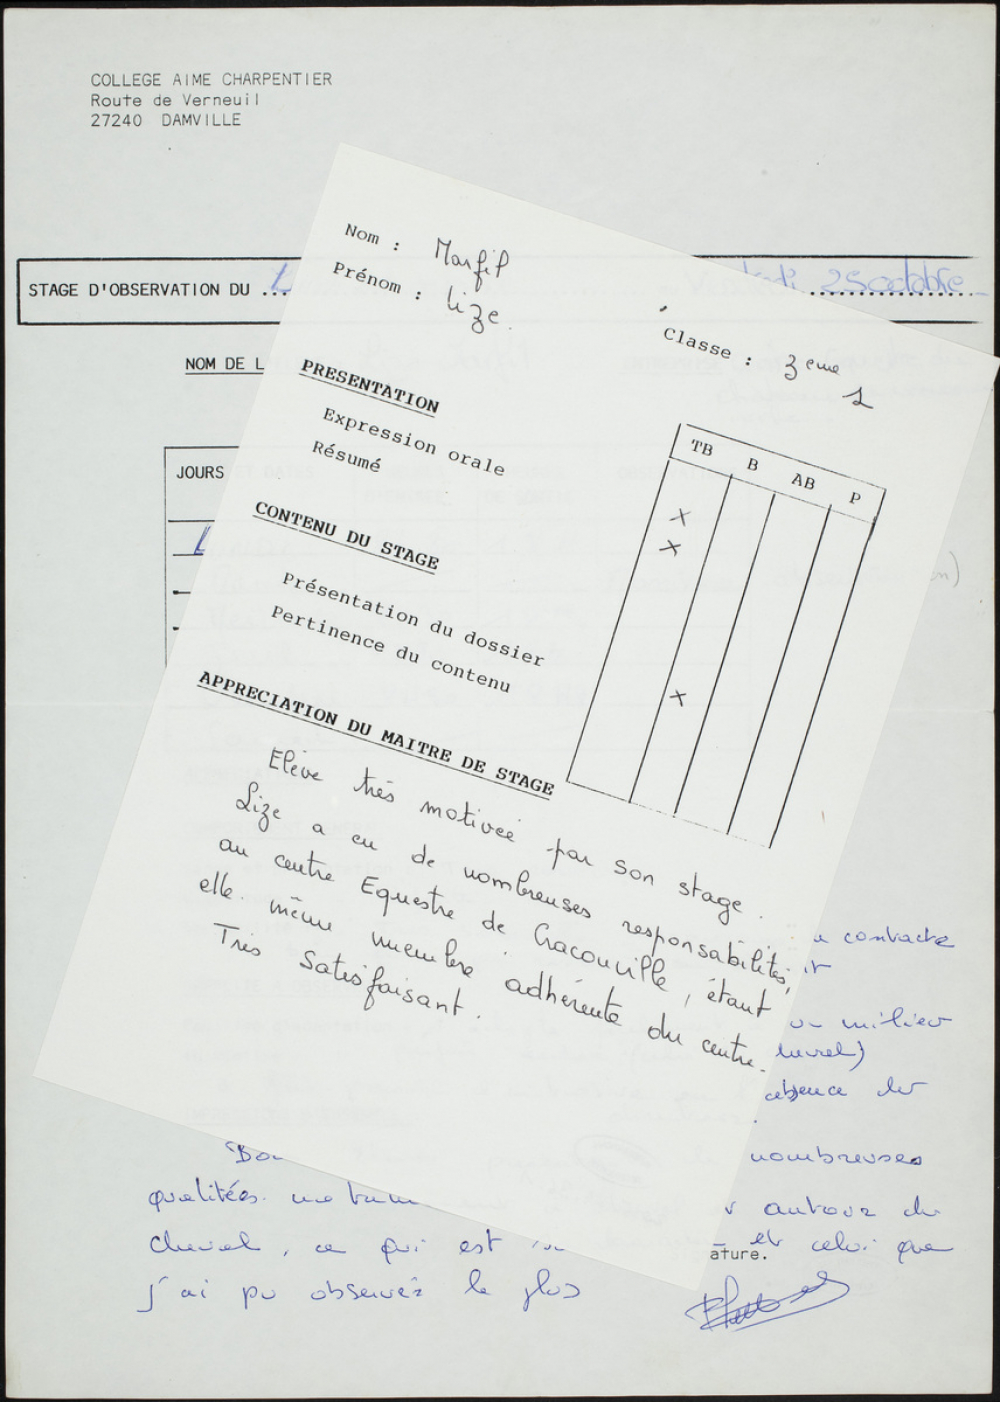 COLLEGE AIME CHARPENTIER
Route de Verneuil
27240 DAMVILLE
STAGE D'OBSERVATION DU ... 25 octobre
NOM DE L
JOURS
Nom : Marfil
Prénom : Lize.
Classe : 3eme 1
PRESENTATION
Expression orale
Résumé
TB B AB P
x
x
CONTENU DU STAGE
Présentation du dossier
Pertinence du contenu
x
APPRECIATION DU MAITRE DE STAGE
Elève très motivée par son stage.
Lize a eu de nombreuses responsabilités,
au centre Equestre de Gracouville, étant
elle même membre adhérente du centre.
Très Satisfaisant.
contacte
milieu
absence des
nombreuses
qualitées.
autour du
cheval, ce qui est
et celui que
ature.
j'ai pu observer le plus